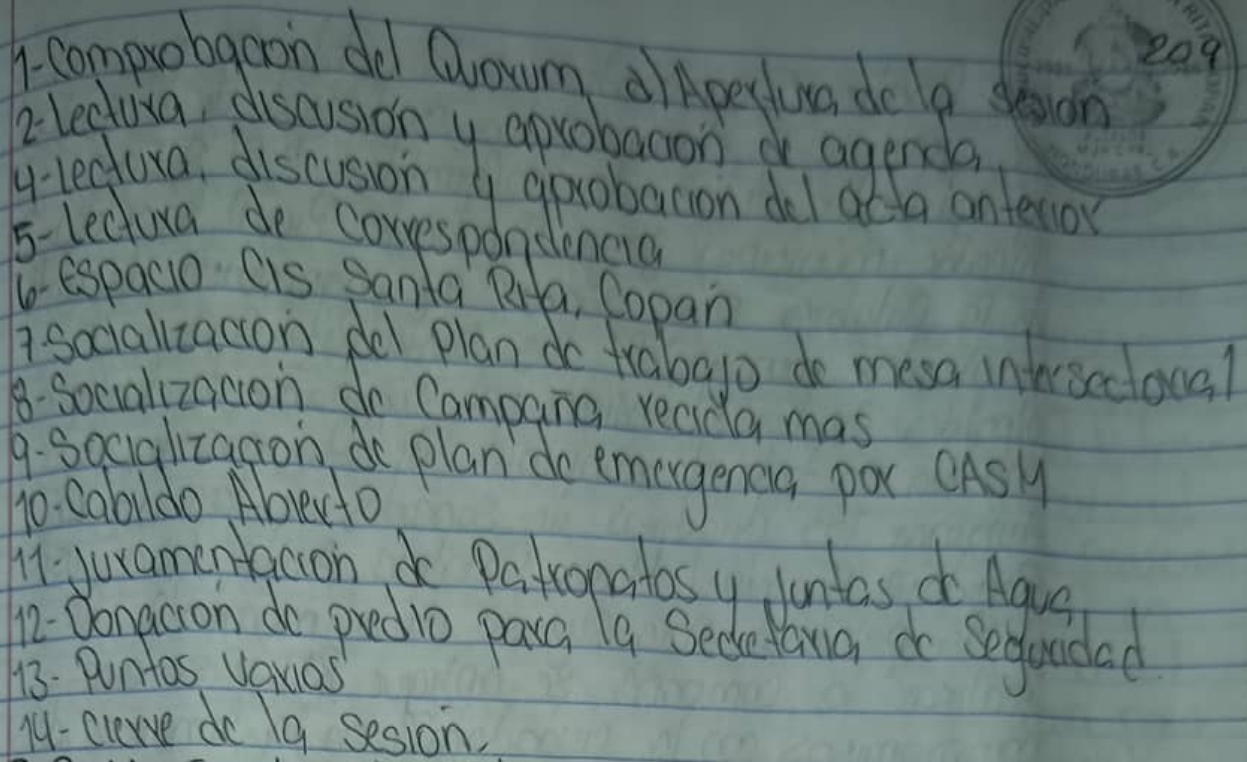 1-Comprobacion del Quorum, a) Apertura de la sesion
2-Lectura, discusión y aprobacion de agenda
4-Lectura, discusión y aprobacion del acta anterior
5-Lectura de correspondencia
6-Espacio CIS Santa Rita, Copan
7.Socialización del Plan de trabajo de mesa intersectorial
8-Socialización de Campaña recicla mas
9-Socialización de plan de emergencia por CASM
10-Cabildo Abierto
11-Juramentación de Patronatos y Juntas de Agua
12-Donación de predio para la Secretaria de Seguridad.
13-Puntos varios
14-Cierre de la sesión.
209